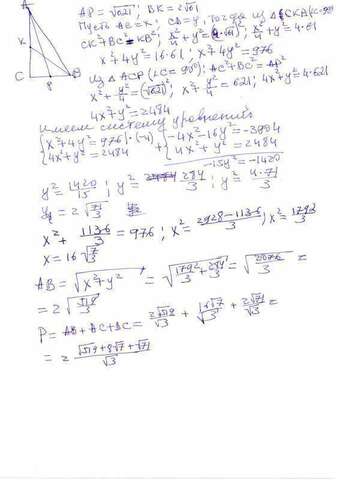 A
K
C
P
B
AP = √621; BK = 2√61
Пусть AC = x; CB = y, тогда из ΔBCK (∠C=90°)
CK²+BC² = KB²; x²/4 + y² = (2√61)²; x²/4 + y² = 4·61
x²+4y² = 16·61; x²+4y² = 976
Из ΔACP (∠C=90°): AC²+BC² = AP²
x² + y²/4 = (√621)²; x² + y²/4 = 621; 4x²+y² = 4·621
4x²+y² = 2484
имеем систему уравнений
{x²+4y² = 976 |·(-4) {-4x²-16y² = -3904
{4x²+y² = 2484 + {4x²+y² = 2484
-15y² = -1420
y² = 1420/15; y² = 284/3; y² = 4·71/3
y = 2√71/3
x² + 1136/3 = 976; x² = 2928-1136/3; x² = 1792/3
x = 16√7/3
AB = √x²+y² = √1792/3+284/3 = √2076/3 =
= 2√519/3
P = AB+AC+BC = 2√519/√3 + 16√7/√3 + 2√71/√3 =
= 2 √519+8√7+√71/√3